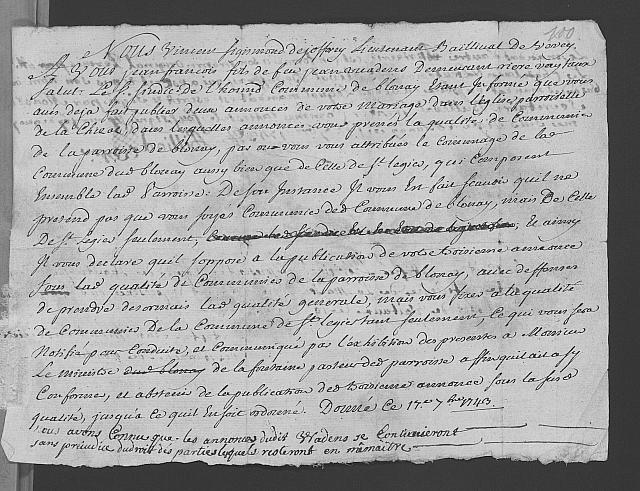 100
Nous Vincent Sigismond de Joffrey Lieutenant Baillival de Vevey.
A Vous Jean francois fils de feu Jean Madeux Demeurant riere vay faux
Salut. Le Sr. Sindic de l'honnd Commune de blonay Etant Informé que vous
avés deja fait publier deux annonces de votre Mariage dans l'Eglise parroissialle
de la Chiesaz, dans lesquelles annonces vous prenés la qualité de Communier
de la parroisse de blonay, pas ou vous vous attribués le Communage de la
Commune dud blonay aussy bien que de Celle de St. legier, qui Composent
Ensemble lad Parroisse: De son Instance Il vous En fait scavoir qu'il ne
pretend pas que vous soyés Communier de d Commune de blonay, mais De Celle
De St. Legier seulement, Et ainsy
Il vous declare qu'il s'oppose a la publication de votre troisieme annonce
sous lad qualité de Communier de la parroisse de blonay, avec deffenses
de prendre desormais lad qualité generale, mais vous fixer a la qualité
de Communier De la Commune de St. legier tant seulement, Ce qui vous sera
Notifié pour Conduite, et Communiqué par l'exhibition des presentes a Monsieur
Le Ministre dud blonay de la fontaine pasteur de d parroisse affin qu'il aït a s'y
Conforme, et abstenir de la publication de d troisieme annonce sous la susd
qualité, jusqu'a Ce qu'il En soit ordonné. Donné Ce 17.e 7bre 1743.
Nous avons Connu que les annonces dudit Madeus se Continueront
sans prejudice du droit des parties lesquels resteront en même être